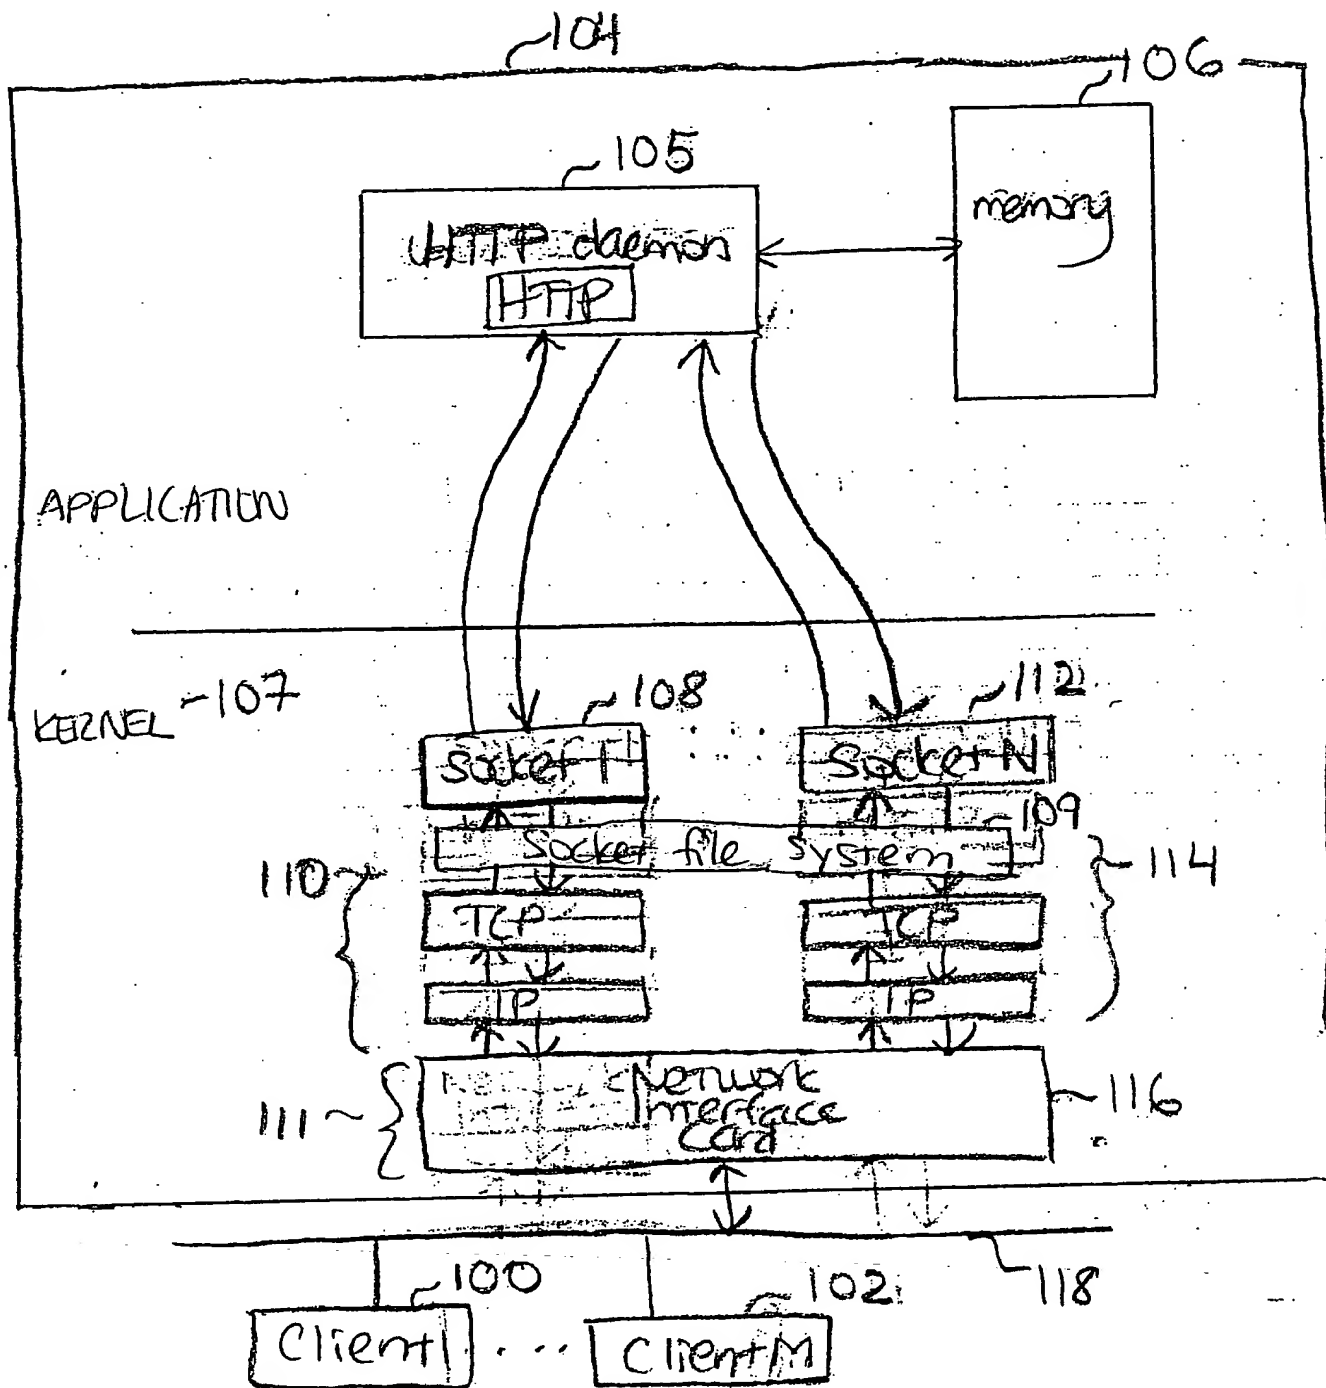 104
106
105
memory
HTTP daemon
HTTP
APPLICATION
KERNEL
107
108
112
Socket 1
....
Socket N
109
Socket file system
110
114
TCP
TCP
IP
IP
111
Network
Interface
Card
116
118
100
102
Client 1
....
Client M